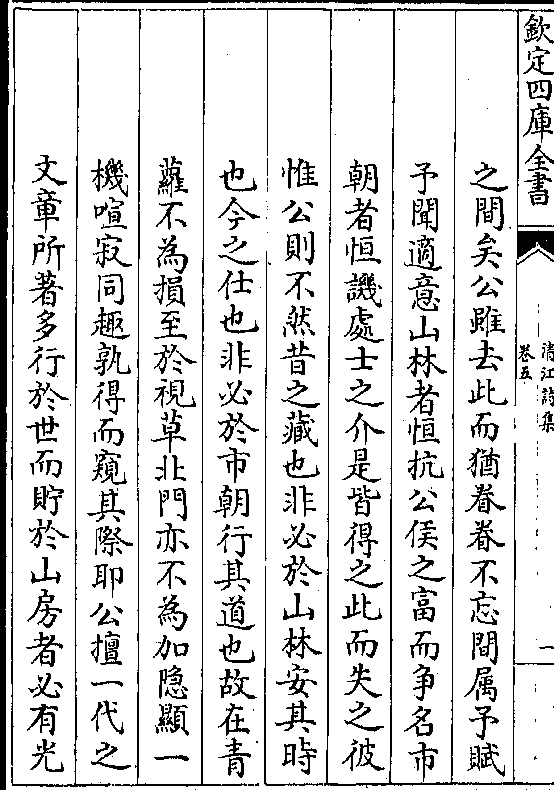 欽定四庫全書
清江詩集
卷五
一
之間矣公雖去此而猶眷眷不忘間属予賦
予聞適意山林者恒抗公侯之富而争名市
朝者恒譏處士之介是皆得之此而失之彼
惟公則不然昔之藏也非必於山林安其時
也今之仕也非必於市朝行其道也故在青
蘿不為損至於視草北門亦不為加隐顯一
機喧寂同趣孰得而窺其際耶公擅一代之
文章所著多行於世而貯於山房者必有光